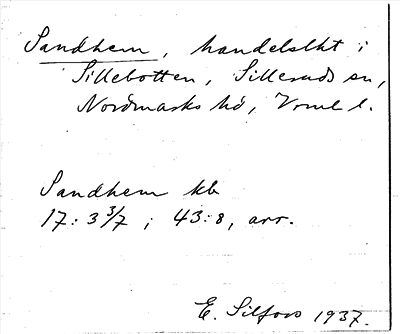 Sandhem, handelslht i
Sillebotten, Silleruds sn,
Nordmarks hd, Vrml l.
Sandhem kb
17:3 3/7 ; 43:8, arr.
E. Silfors 1937.